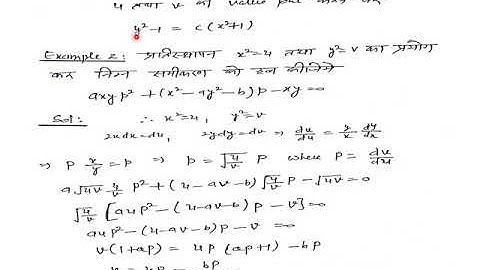 u तथा v का value put करने पर
y²-1 = c(x²+1)
Example 2: प्रतिस्थापन x²=u तथा y²=v का प्रयोग
कर निम्न समीकरण को हल कीजिये
axyp² + (x²-ay²-b)p - xy=0
Sol: ∴ x²=u, y²=v
2xdx=du, 2ydy=dv ⇒ dv/du = y/x dy/dx
⇒ P x/y = p ⇒ p = √u/√v P where P = dv/du
a√uv u/v P² + (u-av-b)√u/√v P - √uv=0
√u/√v [auP² - (u-av-b)P - v]=0
auP² - (u-av-b)P - v =0
v(1+aP) = uP (aP+1) - bP
v = uP - bP